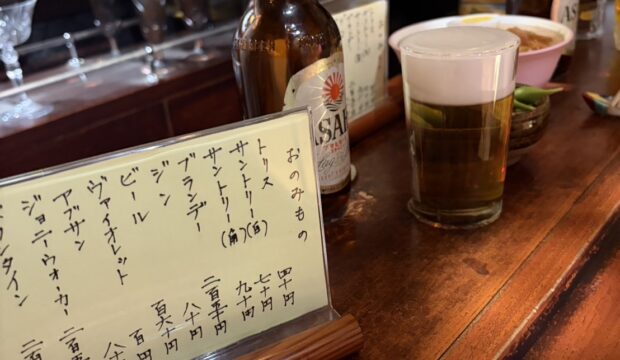 おのみもの
トリス 四十円
サントリー(白) 七十円
サントリー(角) 九十円
ブランデー 二百五十円
ジン 八十円
ビール 百六十円
ヴァイオレット 百円
アブサン 八十
ジョニーウォーカー 二百
ランタイン 二百
ASAH